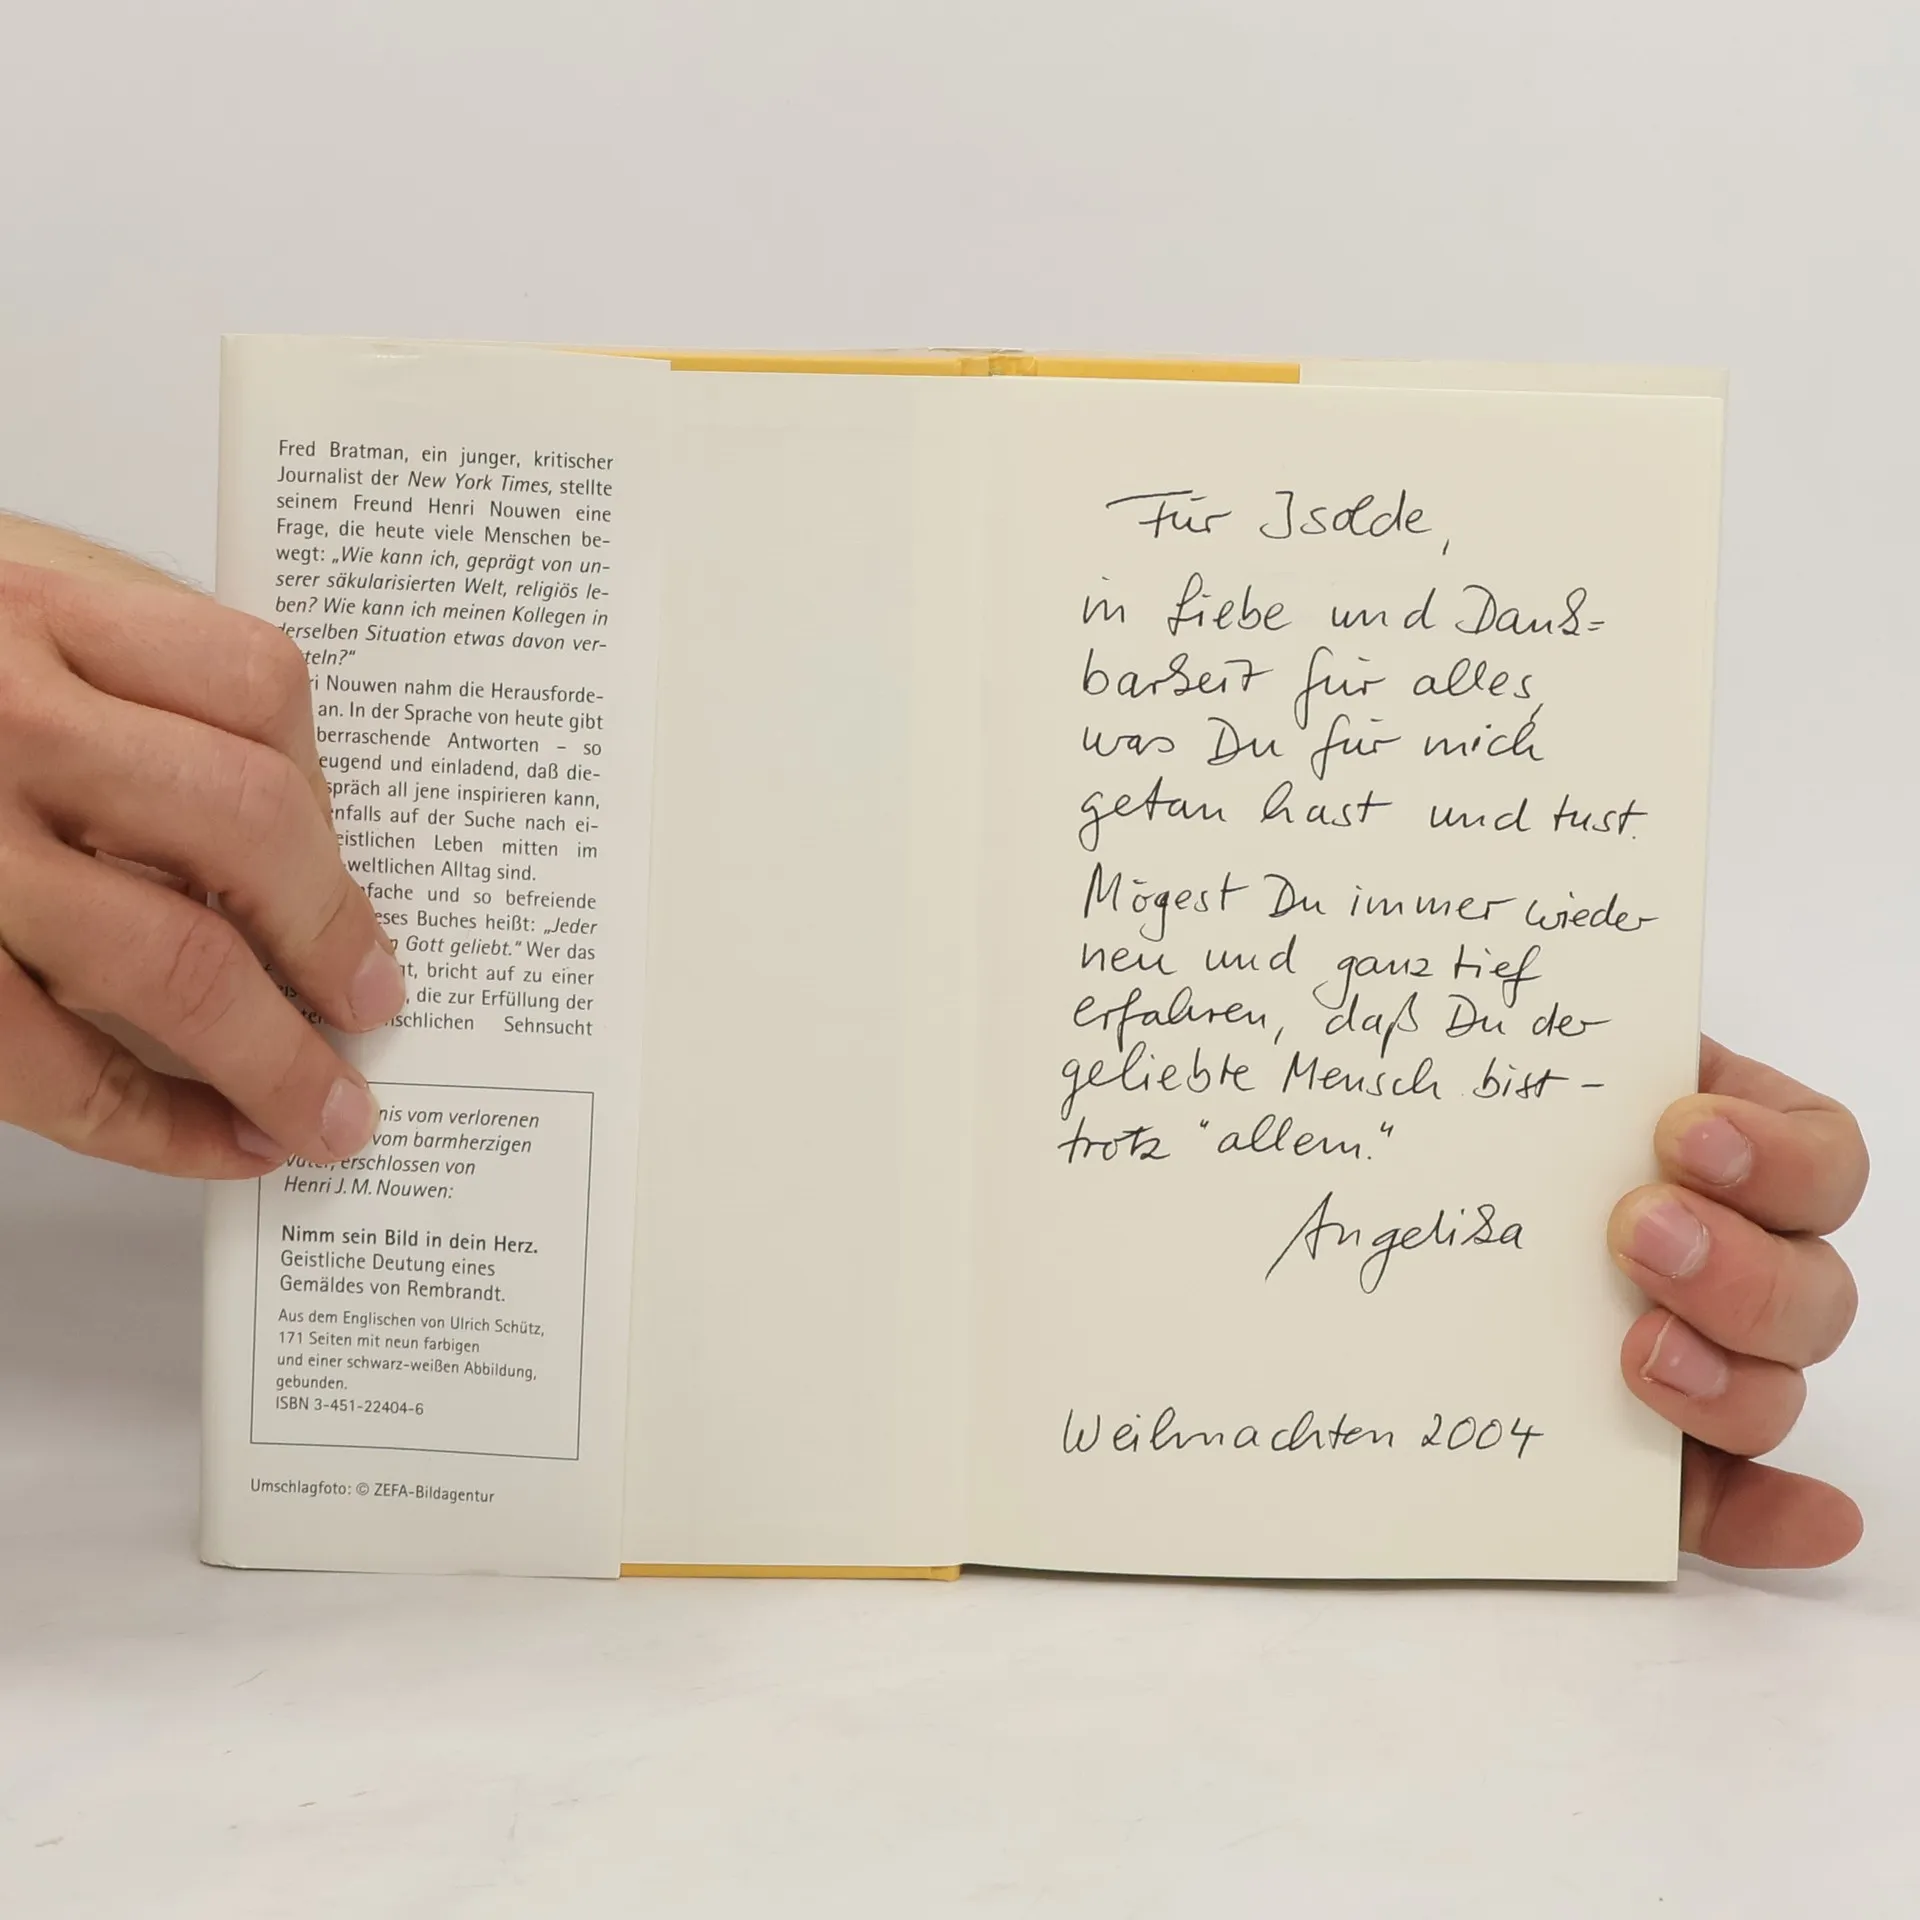 Fred Bratman, ein junger, kritischer
Journalist der New York Times, stellte
seinem Freund Henri Nouwen eine
Frage, die heute viele Menschen be-
wegt: „Wie kann ich, geprägt von un-
serer säkularisierten Welt, religiös le-
ben? Wie kann ich meinen Kollegen in
derselben Situation etwas davon ver-
teln?"
ri Nouwen nahm die Herausforde-
an. In der Sprache von heute gibt
berraschende Antworten – so
eugend und einladend, daß die-
spräch all jene inspirieren kann,
enfalls auf der Suche nach ei-
eistlichen Leben mitten im
weltlichen Alltag sind.
nfache und so befreiende
eses Buches heißt: „Jeder
n Gott geliebt." Wer das
gt, bricht auf zu einer
, die zur Erfüllung der
nschlichen Sehnsucht
nis vom verlorenen
vom barmherzigen
Vater, erschlossen von
Henri J. M. Nouwen:
Nimm sein Bild in dein Herz.
Geistliche Deutung eines
Gemäldes von Rembrandt.
Aus dem Englischen von Ulrich Schütz,
171 Seiten mit neun farbigen
und einer schwarz-weißen Abbildung,
gebunden.
ISBN 3-451-22404-6
Umschlagfoto: © ZEFA-Bildagentur
Für Isolde,
in Liebe und Dank=
barkeit für alles,
was Du für mich
getan hast und tust.
Mögest Du immer wieder
neu und ganz tief
erfahren, daß Du der
geliebte Mensch bist –
trotz "allem."
Angelika
Weihnachten 2004